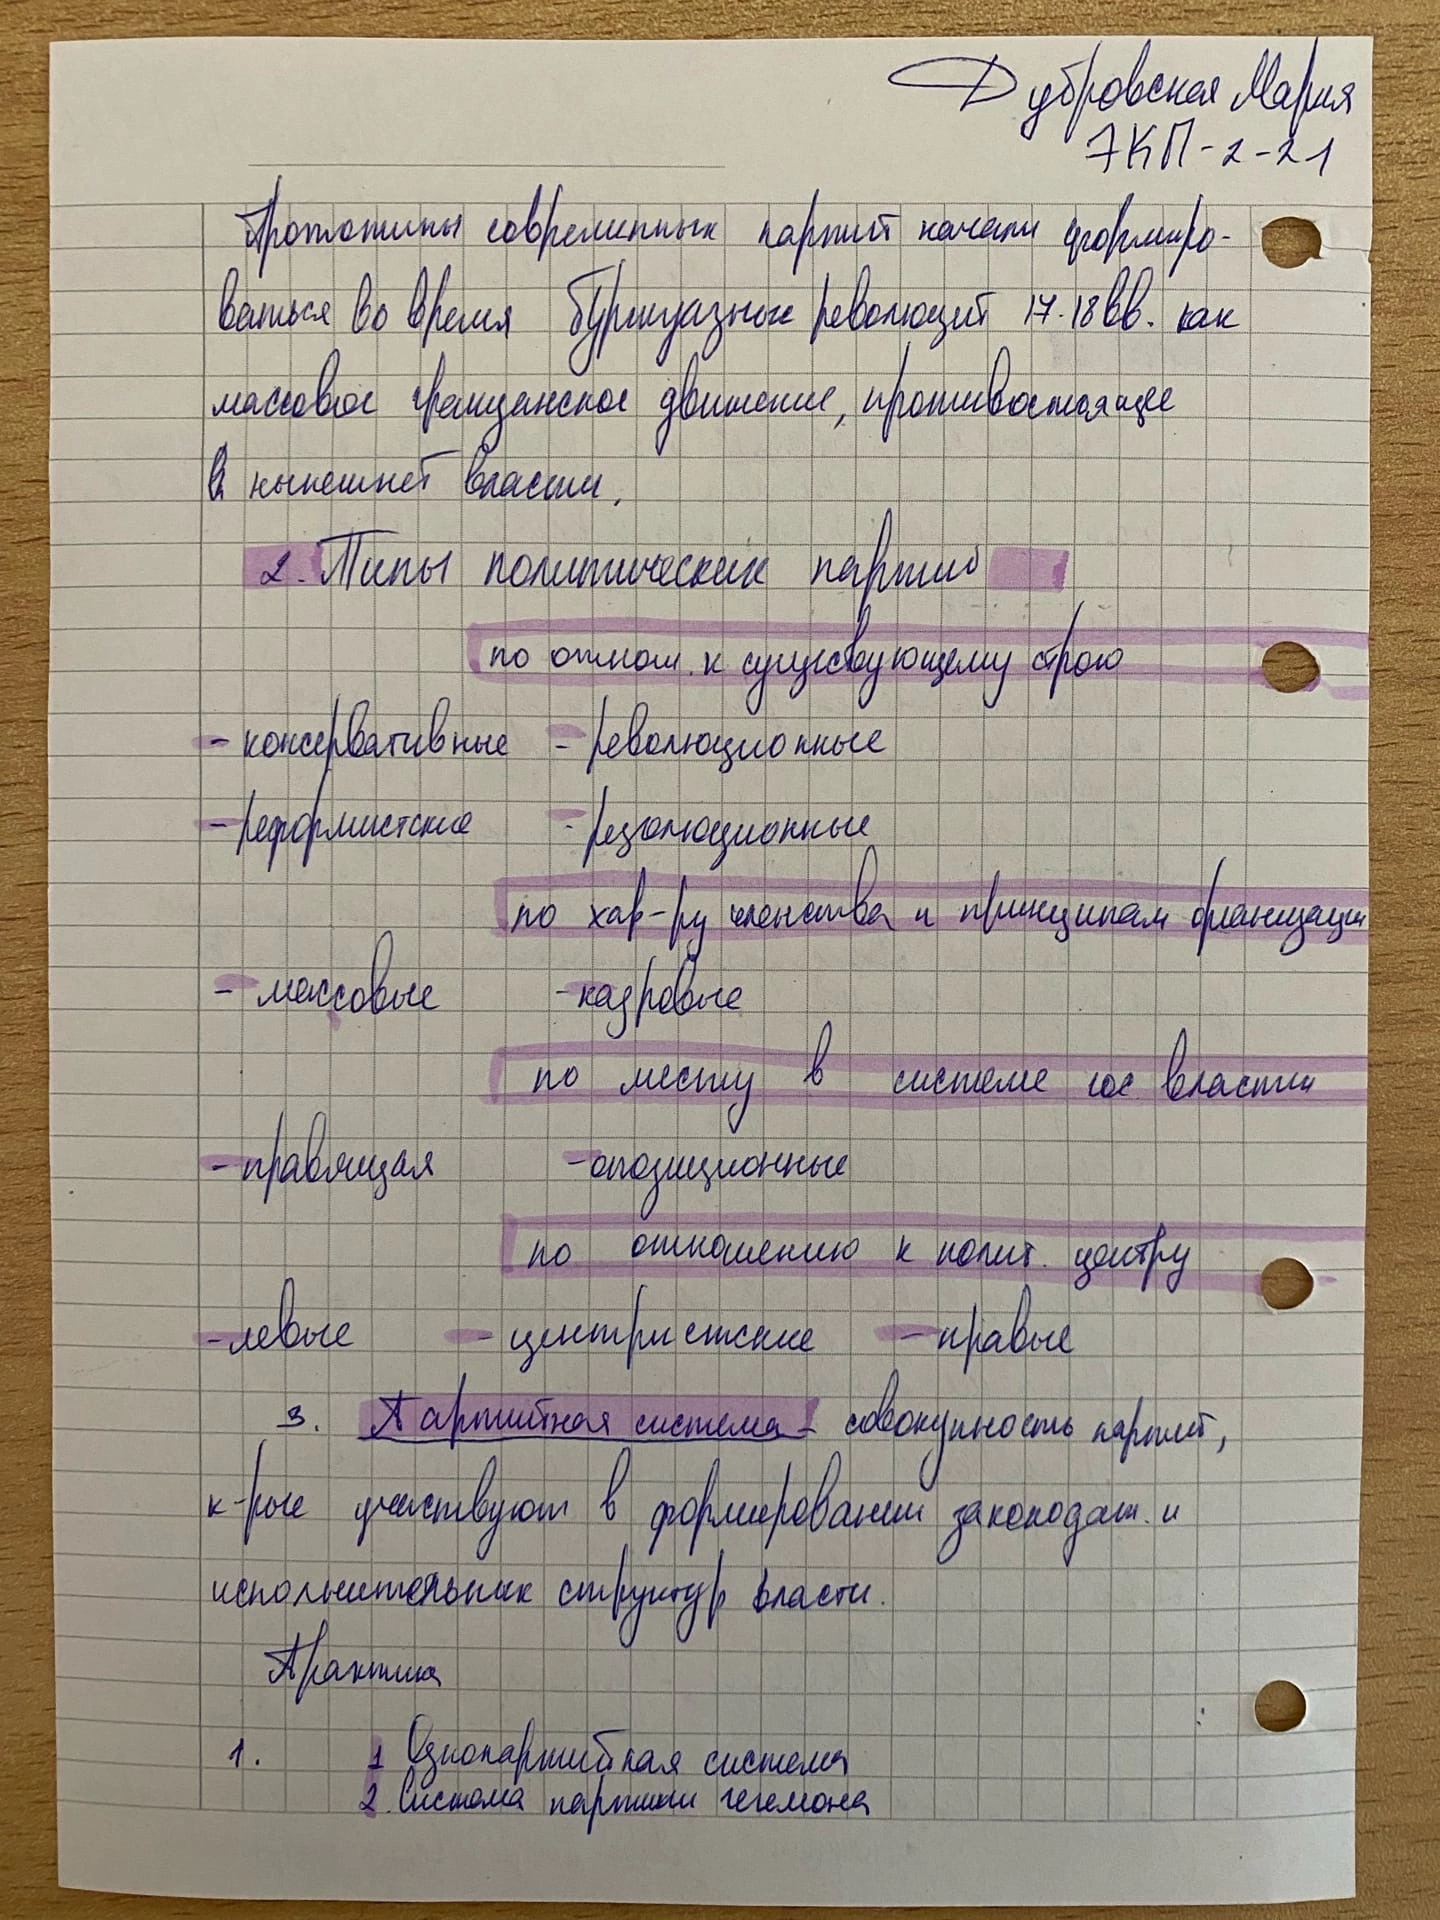 Дубровская Мария
ЭКП-2-21
Прототипы современных партий начали формиро-
ваться во время буржуазных революций 17-18 вв. как
массовое гражданское движение, противостоящее
нынешней власти.
2. Типы политических партий
по отнош. к существующему строю
- консервативные - революционные
- реформистские - резолюционные
по хар-ру членства и принципам организации
- массовые - кадровые
по месту в системе гос. власти
- правящая - опозиционные
по отношению к полит. центру
- левые - центристские - правые
3. Партийная система - совокупность партий,
к-рые участвуют в формировании законодат. и
исполнительных структур власти.
Практика
1. 1 Однопартийная система
2. Система партии гегемона